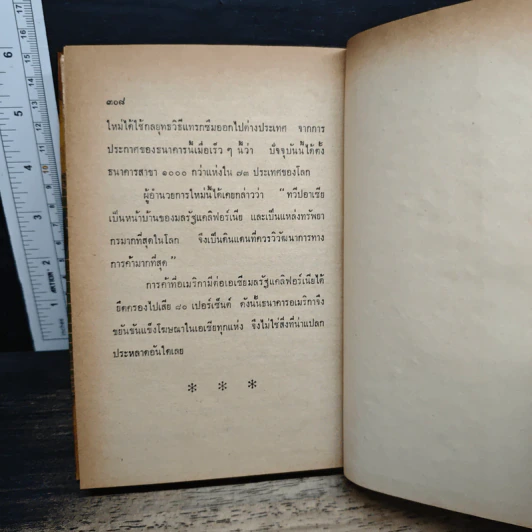 ๓๐๘
ใหม่ได้ใช้กลยุทธวิธีแทรกซึมออกไปต่างประเทศ จากการ
ประกาศของธนาคารนี้เมื่อเร็ว ๆ นี้ว่า ปัจจุบันนี้ได้ตั้ง
ธนาคารสาขา ๑๐๐๐ กว่าแห่งใน ๗๓ ประเทศของโลก
ผู้อำนวยการใหม่นี้ได้เคยกล่าวว่า “ทวีปอาเซีย
เป็นหน้าบ้านของมลรัฐแคลิฟอร์เนีย และเป็นแหล่งทรัพยา
กรมากที่สุดในโลก จึงเป็นดินแดนที่ควรวิวัฒนาการทาง
การค้ามากที่สุด”
การค้าที่อเมริกามีต่อเอเซียมลรัฐแคลิฟอร์เนียได้
ยึดครองไปเสีย ๘๐ เปอร์เซ็นต์ ดังนั้นธนาคารอเมริกาจึง
ขยันขันแข็งโฆษณาในเอเซียทุกแห่ง จึงไม่ใช่สิ่งที่น่าแปลก
ประหลาดอันใดเลย
* * *
5
4
3
2
1
6
7
8
9
10
11
12
13
14
15